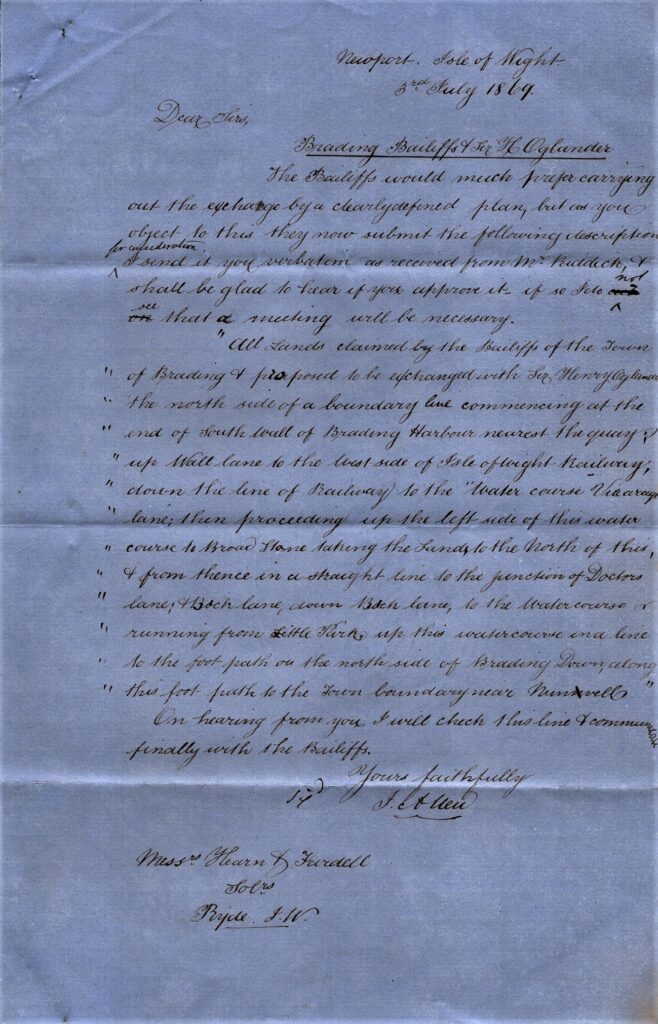 Newport. Isle of Wight.
3rd July 1869.
Dear Sirs,
Brading Bailiffs & Sir H Oglander
The Bailiffs would much prefer carrying
out the exchange by a clearly defined plan, but as you
object to this they now submit the following description
for consideration.
I send it you verbatim as received from Mr Riddick, &
shall be glad to hear if you approve it - if so I do not
see that a meeting will be necessary.
"All Lands claimed by the Bailiffs of the Town
" of Brading & proposed to be exchanged with Sir Henry Oglander
" the north side of a boundary line commencing at the
" end of South Wall of Brading Harbour nearest the quay,
" up Wall lane to the West side of Isle of Wight Railway,
" down the line of Railway to the Water course Vicarage
" lane; then proceeding up the left side of this water
" course to Broad Stone taking the Lands to the North of this,
" & from thence in a straight line to the junction of Doctors
" lane, & Bech lane, down Bech lane, to the Watercourse
" running from Little Park, up this watercourse in a line
" to the foot path on the north side of Brading Down, along
" this foot path to the Town boundary near Nunwell"
On hearing from you I will check this line & communicate
finally with the Bailiffs.
Yours faithfully
Sgd J. Allen
Messrs. Hearn &
Solrs
Ryde I.W.